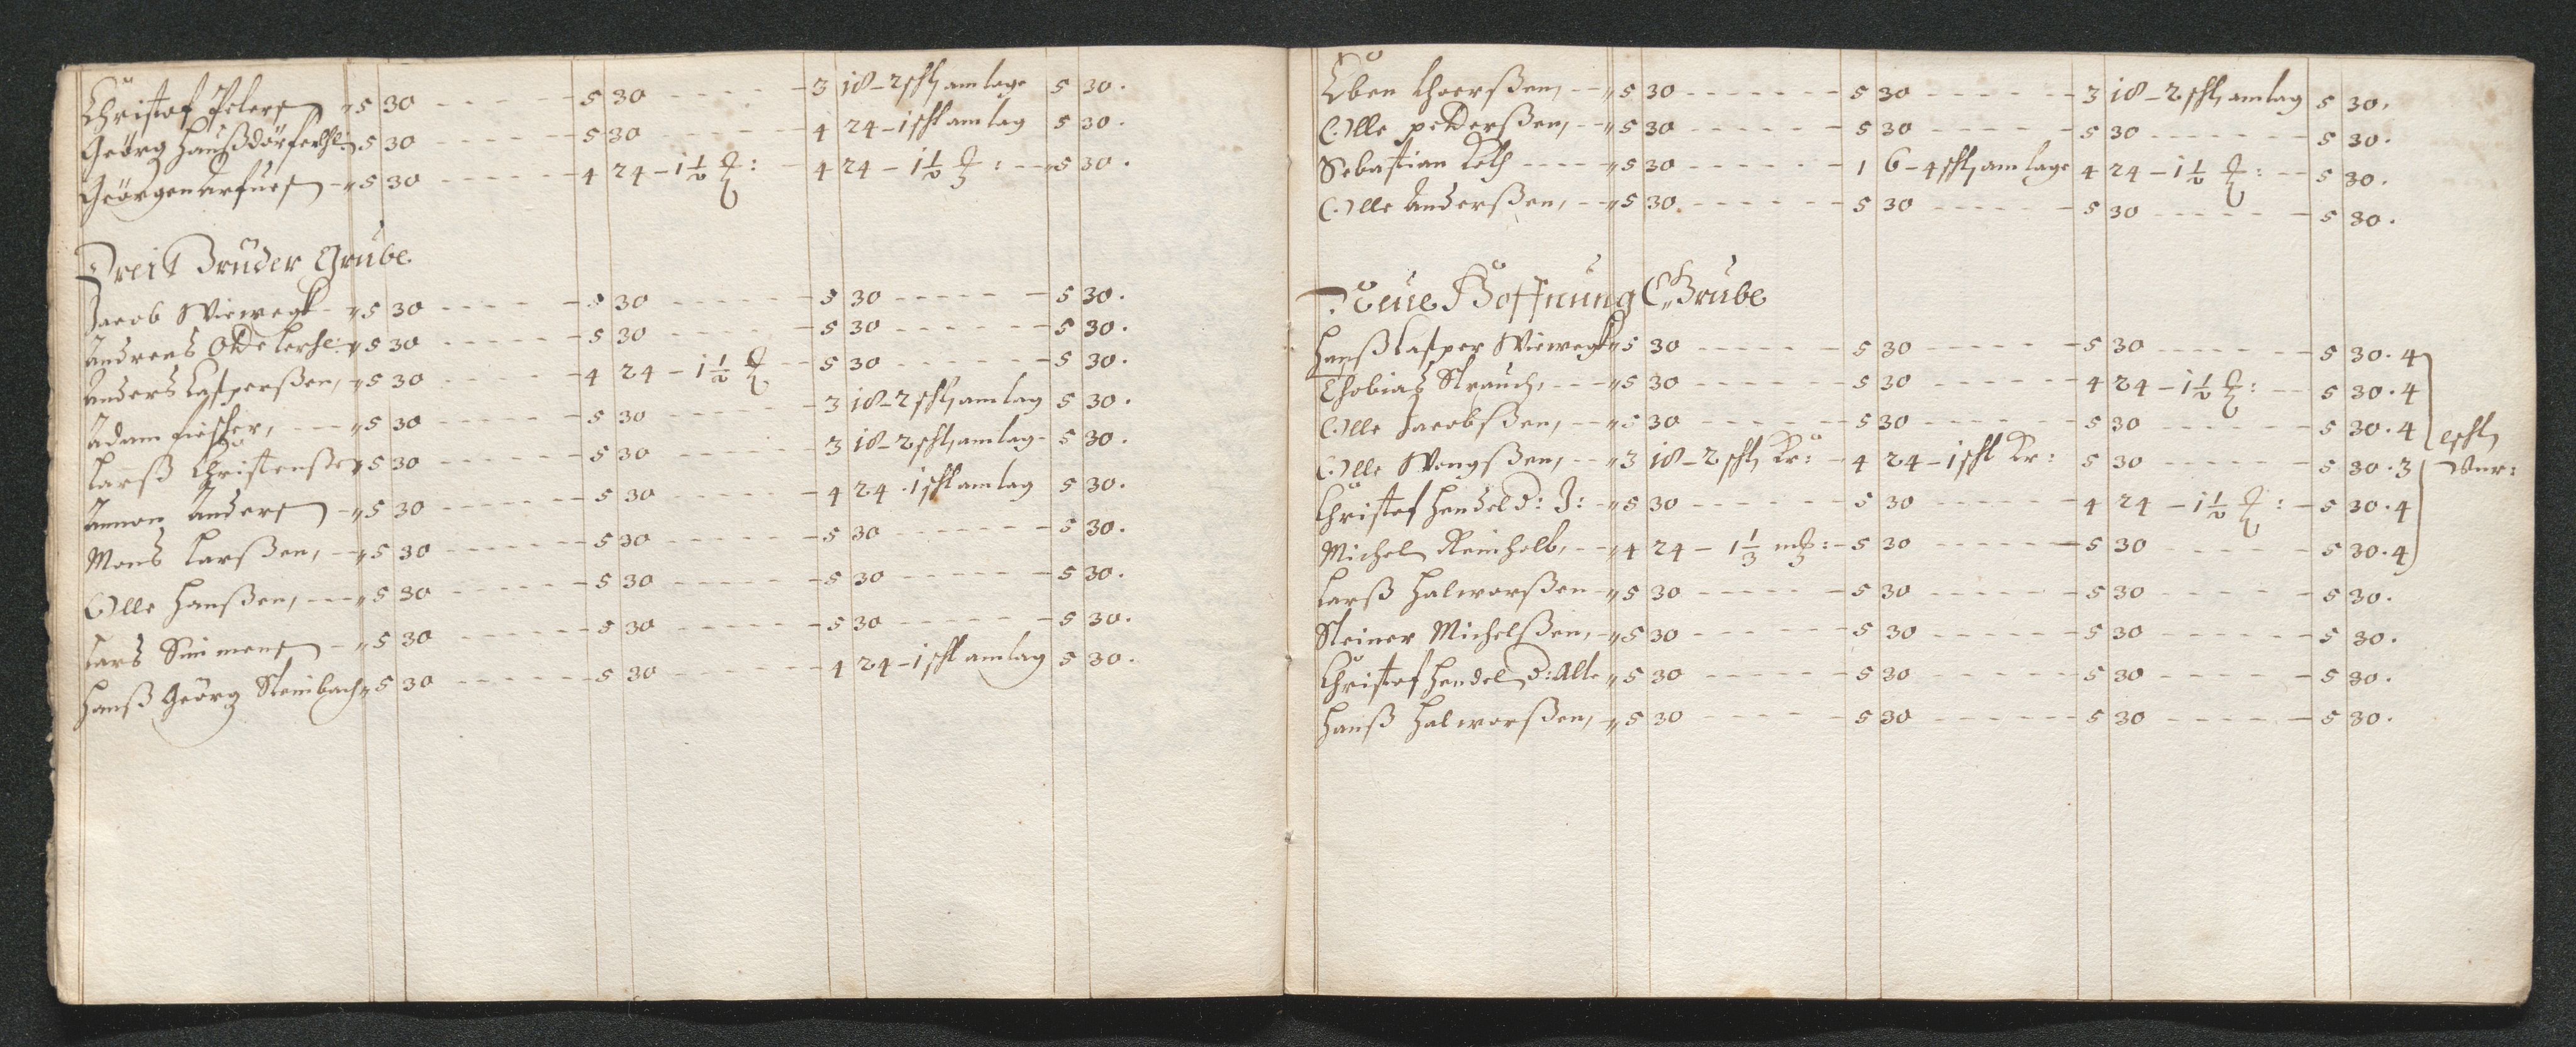 Christof Peters „ 5 30 - - - - - 5 30 - - - - - 3 18 - 2 schl, am lage 5 30.
Geörg Haußdörffer „ 5 30 - - - - - 5 30 - - - - - 4 24 - 1 schl am lag 5 30.
Geörgen - „ 5 30 - - - - - 4 24 - 1 1/2 : - 4 24 - 1 1/2 : - - 5 30.
Dreÿ Brüder Grube
Jacob Wieweg - „ 5 30 - - - - - 5 30 - - - - - 5 30 - - - - - 5 30.
Andreas „ 5 30 - - - - - 5 30 - - - - - 5 30 - - - - - 5 30.
Anders Casperßen, „ 5 30 - - - - - 4 24 - 1 1/2 - 5 30 - - - - - 5 30.
Adam fischer, - - „ 5 30 - - - - - 5 30 - - - - - 3 18 - 2 schl, am lag 5 30.
Larß Christenßen „ 5 30 - - - - - 5 30 - - - - - 3 18 - 2 schl, am lag - 5 30.
Anders - „ 5 30 - - - - - 5 30 - - - - - 4 24 - 1 schl am lag 5 30.
Mons Larßen, - „ 5 30 - - - - - 5 30 - - - - - 5 30 - - - - - 5 30.
Olle Hanßen, - - „ 5 30 - - - - - 5 30 - - - - - 5 30 - - - - - 5 30.
Lars Simmens - „ 5 30 - - - - - 5 30 - - - - - 5 30 - - - - - 5 30.
Hanß Geörg Steinbach „ 5 30 - - - - - 5 30 - - - - - 4 24 - 1 schl am lag 5 30.
Eben Thorßen, - - „ 5 30 - - - - - 5 30 - - - - - 3 18 - 2 schl, am lag 5 30.
Olle pederßen, - „ 5 30 - - - - - 5 30 - - - - - 5 30 - - - - - 5 30.
Sebastian - - - „ 5 30 - - - - - 1 6 - 4 schl, am lage 4 24 - 1 1/2 : - - 5 30.
Olle Anderßen, - - „ 5 30 - - - - - 5 30 - - - - - 5 30 - - - - - 5 30.
Neue Hoffnung Grube
Hanß Casper Wieweg „ 5 30 - - - - - 5 30 - - - - - 5 30 - - - - - 5 30. 4
Thobias Strauch, - - „ 5 30 - - - - - 5 30 - - - - - 4 24 - 1 1/2 : - - 5 30. 4
Olle Jacobßen, - - „ 5 30 - - - - - 5 30 - - - - - 5 30 - - - - - 5 30. 4 schl,
Olle - „ 3 18 - 2 schl, Kr: - 4 24 - 1 schl Kr: 5 30 - - - - - 5 30. 3
Christof Hendel d: J: - „ 5 30 - - - - - 5 30 - - - - - 4 24 - 1 1/2 : - 5 30. 4
Michel Reinholb, - - „ 4 24 - 1 1/3 : - 5 30 - - - - - 5 30 - - - - - 5 30. 4
Larß Halworßen - „ 5 30 - - - - - 5 30 - - - - - 5 30 - - - - - 5 30.
Steiner Michelßen, - „ 5 30 - - - - - 5 30 - - - - - 5 30 - - - - - 5 30.
Christof Hendel d: Alte „ 5 30 - - - - - 5 30 - - - - - 5 30 - - - - - 5 30.
Hanß Halworßen, - „ 5 30 - - - - - 5 30 - - - - - 5 30 - - - - - 5 30.